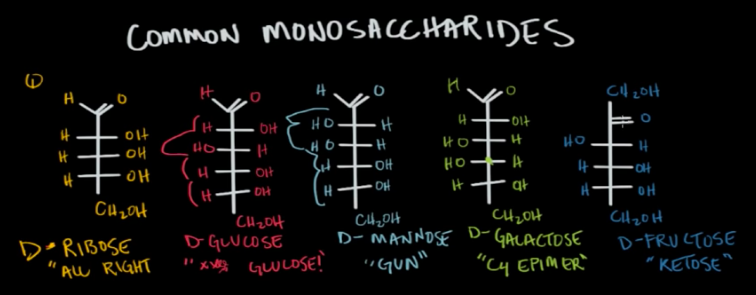 COMMON MONOSACCHARIDES
①
H O
H OH
H OH
H OH
CH₂OH
D-RIBOSE
"ALL RIGHT
H O
H OH
HO H
H OH
H OH
CH₂OH
D-GLUCOSE
GLUCOSE!"
H O
HO H
HO H
H OH
H OH
CH₂OH
D-MANNOSE
"GUN"
H O
H OH
HO H
HO H
H OH
CH₂OH
D-GALACTOSE
"C4 EPIMER"
CH₂OH
O
HO H
H OH
H OH
CH₂OH
D-FRUCTOSE
"KETOSE"